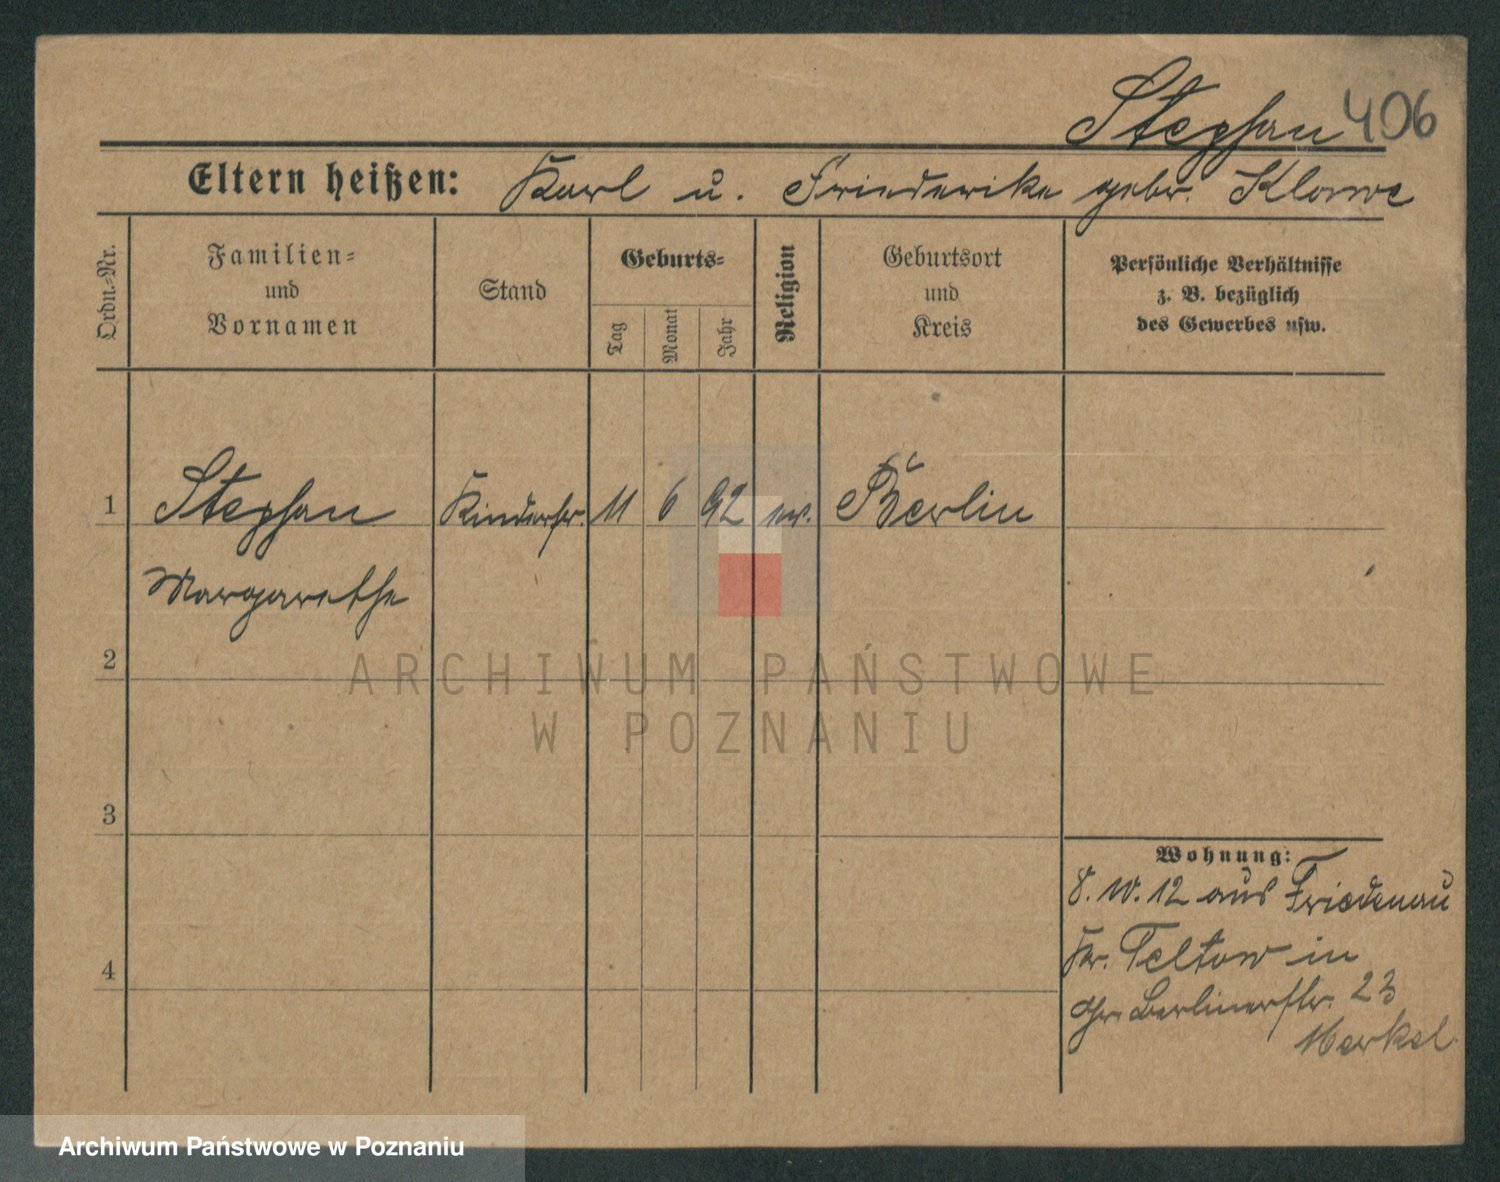 Stephan 406
Eltern heißen: Karl u. Friederike gebr. Klawe
Ordn.-Nr.
Familien-
und
Vornamen
Stand
Geburts-
Tag
Monat
Jahr
Religion
Geburtsort
und
Kreis
Persönliche Verhältnisse
z. B. bezüglich
des Gewerbes usw.
1 Stephan Kinderfr. 11 6 92 ev. Berlin
Margarethe
2
3
4
Wohnung:
8.10.12 aus Friedenau
Kr. Teltow in
Gr. Berlinerstr. 23
Merkel
ARCHIWUM PAŃSTWOWE
W POZNANIU
Archiwum Państwowe w Poznaniu